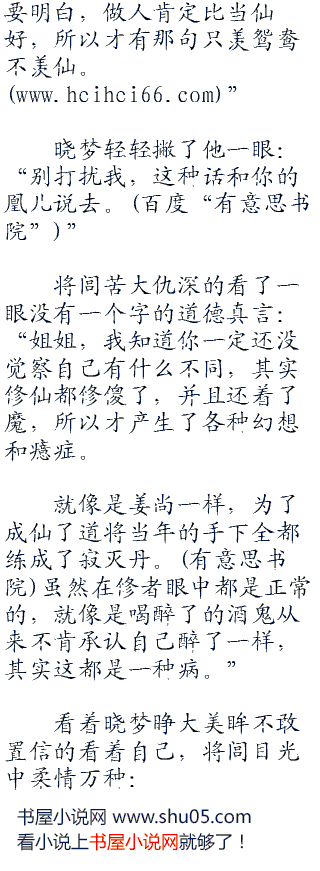 要明白，做人肯定比当仙
好，所以才有那句只羡鸳鸯
不羡仙。
(www.hcihci66.com)”
晓梦轻轻撇了他一眼：
“别打扰我，这种话和你的
凰儿说去。(百度“有意思书
院”)”
将闾苦大仇深的看了一
眼没有一个字的道德真言：
“姐姐，我知道你一定还没
觉察自己有什么不同，其实
修仙都修傻了，并且还着了
魔，所以才产生了各种幻想
和癔症。
就像是姜尚一样，为了
成仙了道将当年的手下全都
练成了寂灭丹。(有意思书
院)虽然在修者眼中都是正常
的，就像是喝醉了的酒鬼从
来不肯承认自己醉了一样，
其实这都是一种病。”
看着晓梦睁大美眸不敢
置信的看着自己，将闾目光
中柔情万种：
书屋小说网 www.shu05.com
看小说上书屋小说网就够了！